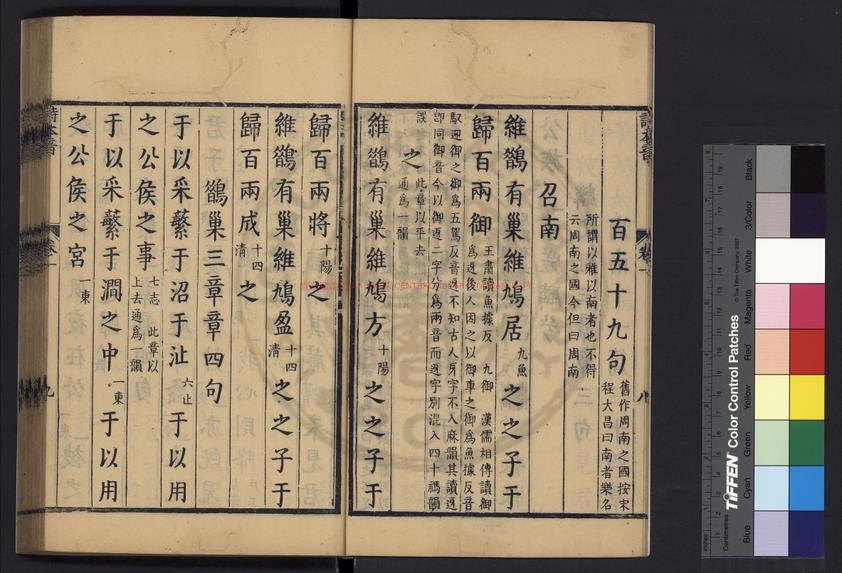 百五十九句 舊作周南之國按宋
程大昌曰南者樂名
所謂以雅以南者也不得
云周南之國今但曰周南
召南
維鵲有巢維鳩居九魚之之子于
歸百兩御 王肅讀魚據反 九御 漢儒相傳讀御
爲迓後人因之以御車之御爲魚據反音
馭迎御之御爲五駕反音迓不知古人牙字不入麻韻其讀迓
卽同御音今以御迓二字分爲兩音而迓字別混入四十禡韻
誤 此章以平去
通爲一韻 之
維鵲有巢維鳩方十陽之之子于
歸百兩將十陽之
維鵲有巢維鳩盈十四清之之子于
歸百兩成十四清之
鵲巢三章章四句
于以采蘩于沼于沚六止于以用
之公侯之事七志 此章以
上去通爲一韻
于以采蘩于澗之中一東于以用
之公侯之宮一東
詩本音
卷一
八
詩本音
卷一
九
TIFFEN Color Control Patches
© The Tiffen Company, 2007
Blue
Cyan
Green
Yellow
Red
Magenta
White
3/Color
Black
Inches
Centimetres